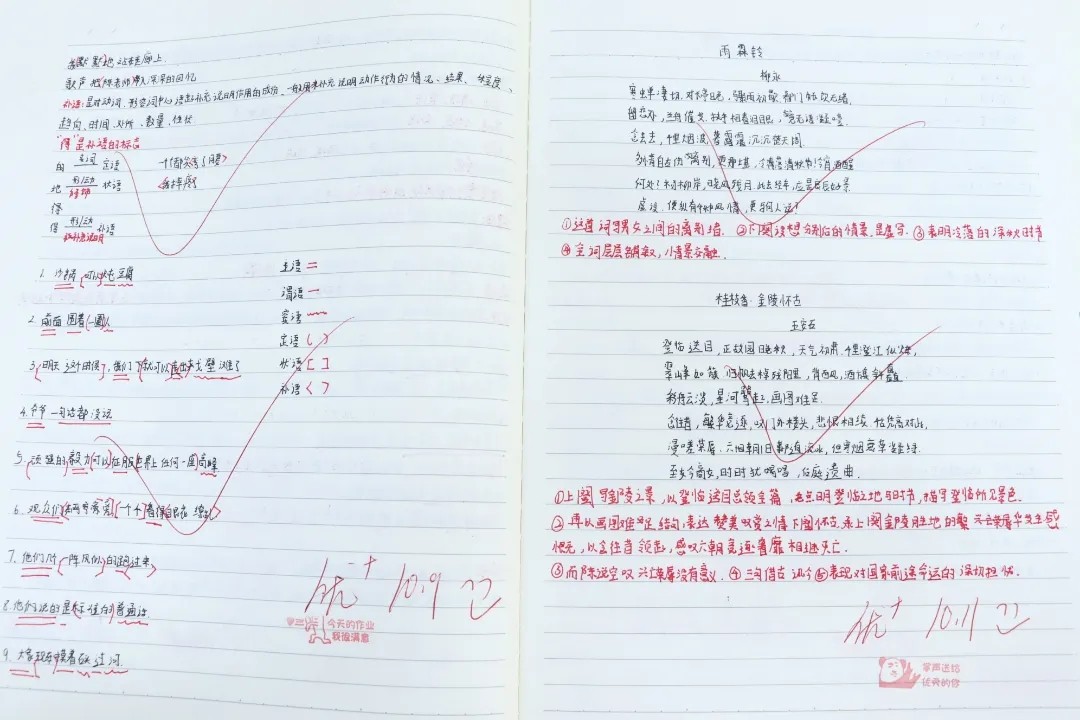 默默地站在廊上
歌声把陈老师带入深深的回忆
补语:是对动词、形容词中心语起补充说明作用的成份、一般用来补充说明动作行为的情况、结果、程度、
趋向、时间、处所、数量、性状
"得"是补语的标志
的 名词 定语
地 形/动 状语
得
得 形/动 补语
主语
谓语
宾语
定语 ( )
状语 [ ]
补语 < >
1. 沙锅可以炖豆腐
2. 前面围着一圈人
3. 明天这个时候,我们就可以走出戈壁滩了
4. 爷爷一句话都没说
5. 顽强的毅力可以征服世界上任何一座高峰
6. 观众们
7. 他们
8. 他们说的是标准的普通话
9. 大家现在摸着石头过河
优+ 10.9
今天的作业
我很满意
雨霖铃
柳永
寒蝉凄切,对长亭晚,骤雨初歇,都门帐饮无绪,
留恋处,兰舟催发,执手相看泪眼,竟无语凝噎。
念去去,千里烟波,暮霭沉沉楚天阔。
多情自古伤离别,更那堪,冷落清秋节!今宵酒醒
何处?杨柳岸,晓风残月,此去经年,应是良辰好景
虚设,便纵有千种风情,更与何人说?
①这首词写男女之间的离别之情。②下阕设想分别后的情景,是虚写。③表明冷落的深秋时节
④全词层层铺叙,情景交融。
桂枝香·金陵怀古
王安石
登临送目,正故国晚秋,天气初肃,千里澄江似练,
翠峰如簇,归帆去棹残阳里,背西风,酒旗斜矗。
彩舟云淡,星河鹭起,画图难足。
念往昔,繁华竞逐,叹门外楼头,悲恨相续。千古凭高对此,
漫嗟荣辱。六朝旧事随流水,但寒烟衰草凝绿。
至今商女,时时犹唱,后庭遗曲。
①上阕写金陵之景,以登临送目总领全篇,点明登临之地与时节,描写登临所见景色。
②再以画图难足结句,表达赞美叹赏之情下阕怀古,承上阕金陵胜地的繁
慨,以念往昔领起,感叹六朝竞逐奢靡相继灭亡.
③而陈说空叹兴荣辱没有意义.④吊古讽今⑤表现对国家前途命运的深切担忧.
优+ 10.11
掌声送给
优秀的你